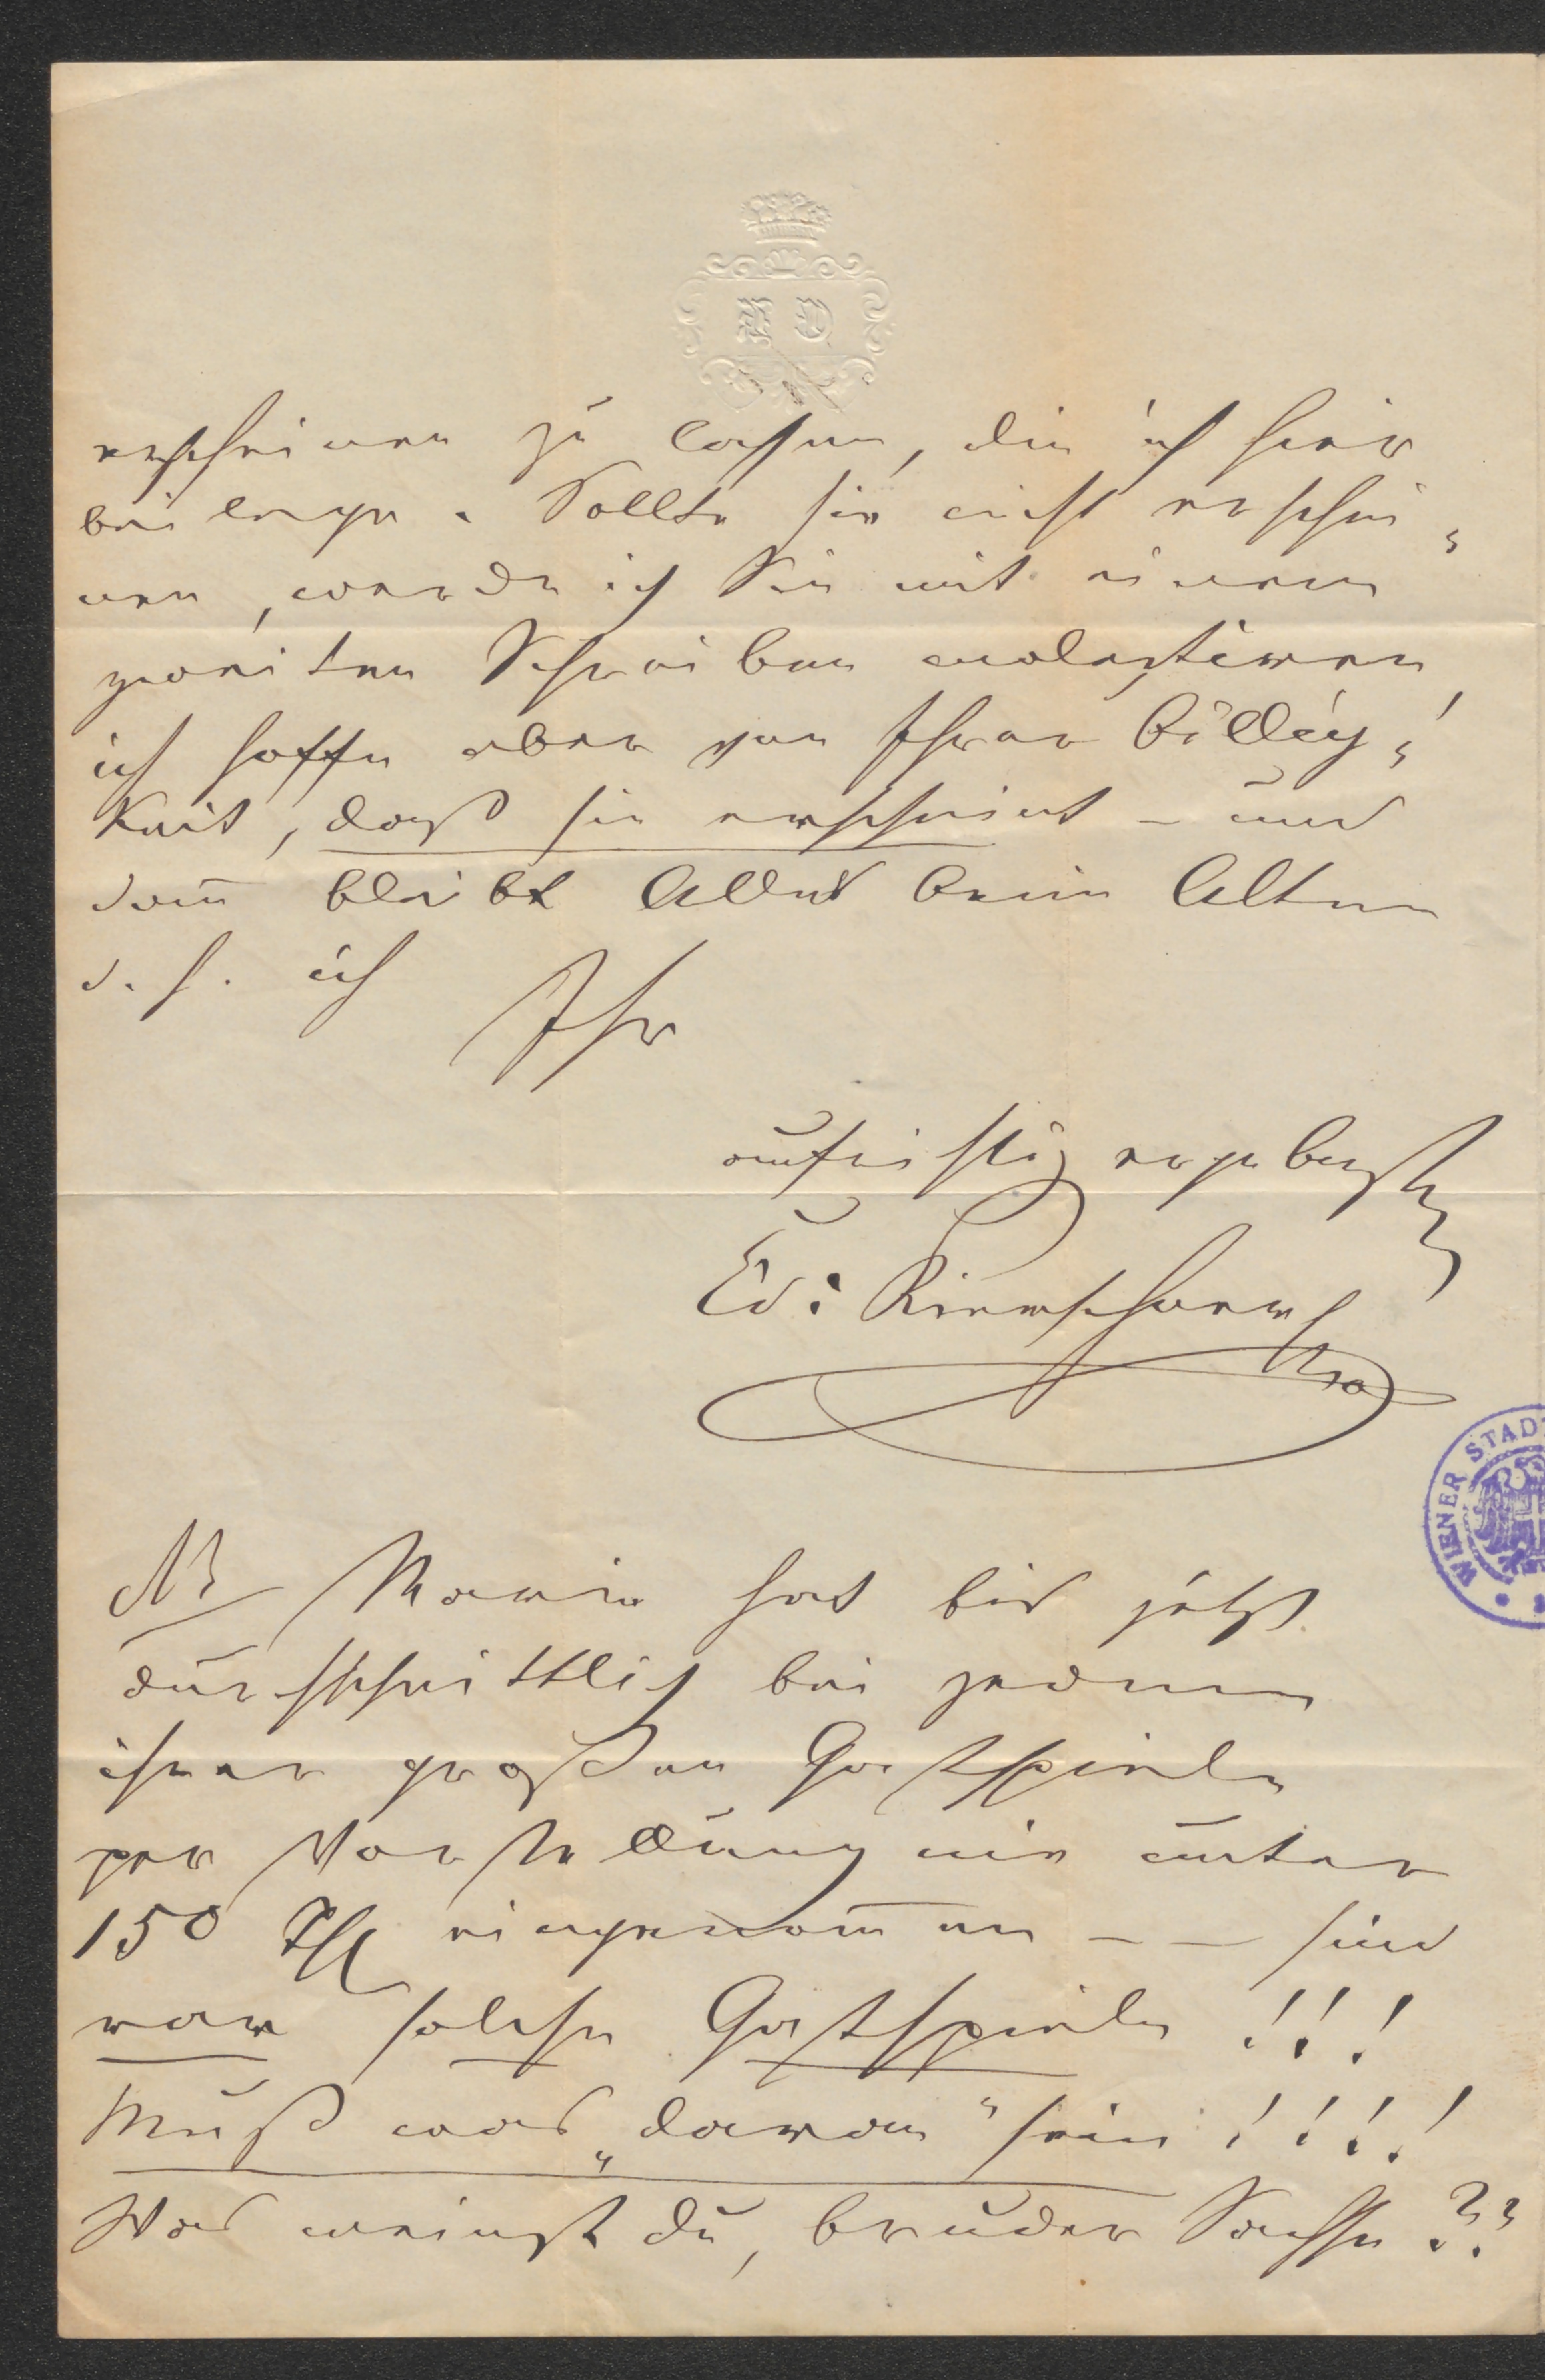 erscheinen zu lassen, die ich hier
bei lege. Sollte sie nicht erschei„
nen, werde ich Sie mit einem
zweiten Schreiben molestiren,
ich hoffe aber von Ihrer Billig„
keit, daß sie erscheint – und
dañ bleibt Alles beim Alten
d. h. ich Ihr
aufrichtig ergebenster
Ed:
NB Marie hat bis jetzt
durchschnittlich bei jedem
ihrer großen Gastspiele
per Vorstellung nie unter
150 eingenom̄en – – sind
rar solche Gastspiele !!!
Muß was „daran“ sein !!!!
Was meinst du, bruder Sachse ??
WIENER STADT